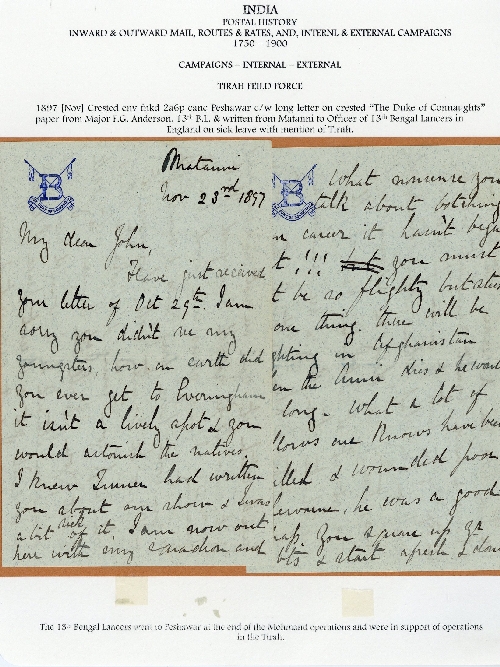 INDIA
POSTAL HISTORY
INWARD & OUTWARD MAIL, ROUTES & RATES, AND, INTERNL & EXTERNAL CAMPAIGNS
1750 – 1900
CAMPAIGNS – INTERNAL – EXTERNAL
TIRAH FEILD FORCE
1897 [Nov] Crested env fnkd 2a6p canc Peshawar c/w long letter on crested "The Duke of Connaughts"
paper from Major E.G. Anderson. 13th B.L. & written from Matanni to Officer of 13th Bengal Lancers in
England on sick leave with mention of Tirah.
Matanni
Nov 23rd 1897
My dear John,
Have just received
your letter of Oct 29th. I am
sorry you didn't see my
youngsters, how on earth did
you ever get to Everingham
it isn't a lively spot & you
would astonish the natives.
I knew had written
you about our show & I was
a bit of it. I am now out
here with my squadron and
What nonsense you
talk about botching
career it hasn't begun
t!!! you must
t be so flighty but
one thing. there will be
ghting in Afghanistan
en the Amir dies & he
long. What a lot of
llows one knows have been
illed & wounded poor
he was a good
hap. You square up yr
bts & start afresh & don
The 13th Bengal Lancers went to Peshawar at the end of the Mohmand operations and were in support of operations
in the Tirah.